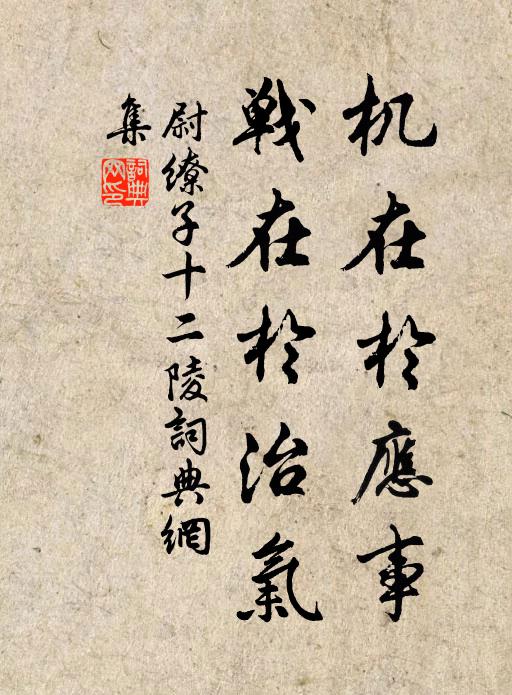 机在於應事
戦在於治氣
尉繚子十二陵詞典網
集
詞典網印